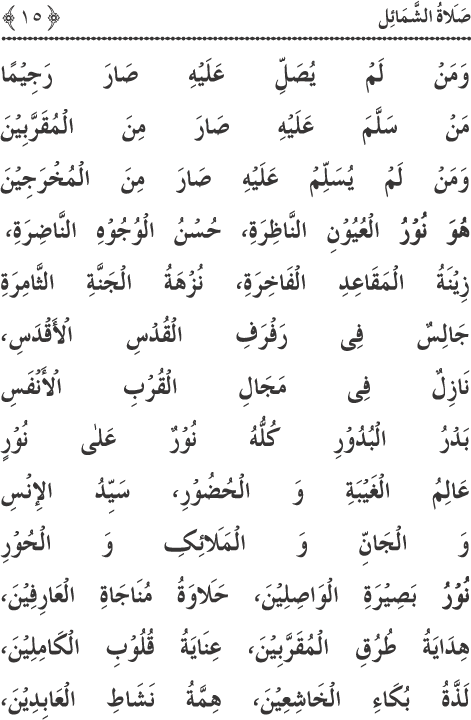 صَلَاةُ الشَّمَائِل ﴿١٥﴾
وَمَنْ لَمْ يُصَلِّ عَلَيْهِ صَارَ رَجِيْمًا
مَنْ سَلَّمَ عَلَيْهِ صَارَ مِنَ الْمُقَرَّبِيْنَ
وَمَنْ لَمْ يُسَلِّمْ عَلَيْهِ صَارَ مِنَ الْمُخْرَجِيْنَ
هُوَ نُوْرُ الْعُيُوْنِ النَّاظِرَةِ، حُسْنُ الْوُجُوْهِ النَّاضِرَةِ،
زِيْنَةُ الْمَقَاعِدِ الْفَاخِرَةِ، نُزْهَةُ الْجَنَّةِ الثَّامِرَةِ
جَالِسٌ فِى رَفْرَفِ الْقُدْسِ الْأَقْدَسِ،
نَازِلٌ فِى مَجَالِ الْقُرْبِ الْأَنْفَسِ
بَدْرُ الْبُدُوْرِ كُلُّهُ نُوْرٌ عَلٰى نُوْرٍ
عَالِمُ الْغَيْبَةِ وَ الْحُضُوْرِ، سَيِّدُ الإِنْسِ
وَ الْجَانِّ وَ الْمَلَائِكِ وَ الْحُوْرِ
نُوْرُ بَصِيْرَةِ الْوَاصِلِيْنَ، حَلَاوَةُ مُنَاجَاةِ الْعَارِفِيْنَ،
هِدَايَةُ طُرُقِ الْمُقَرَّبِيْنَ، عِنَايَةُ قُلُوْبِ الْكَامِلِيْنَ،
لَذَّةُ بُكَاءِ الْخَاشِعِيْنَ، هِمَّةُ نَشَاطِ الْعَابِدِيْنَ،